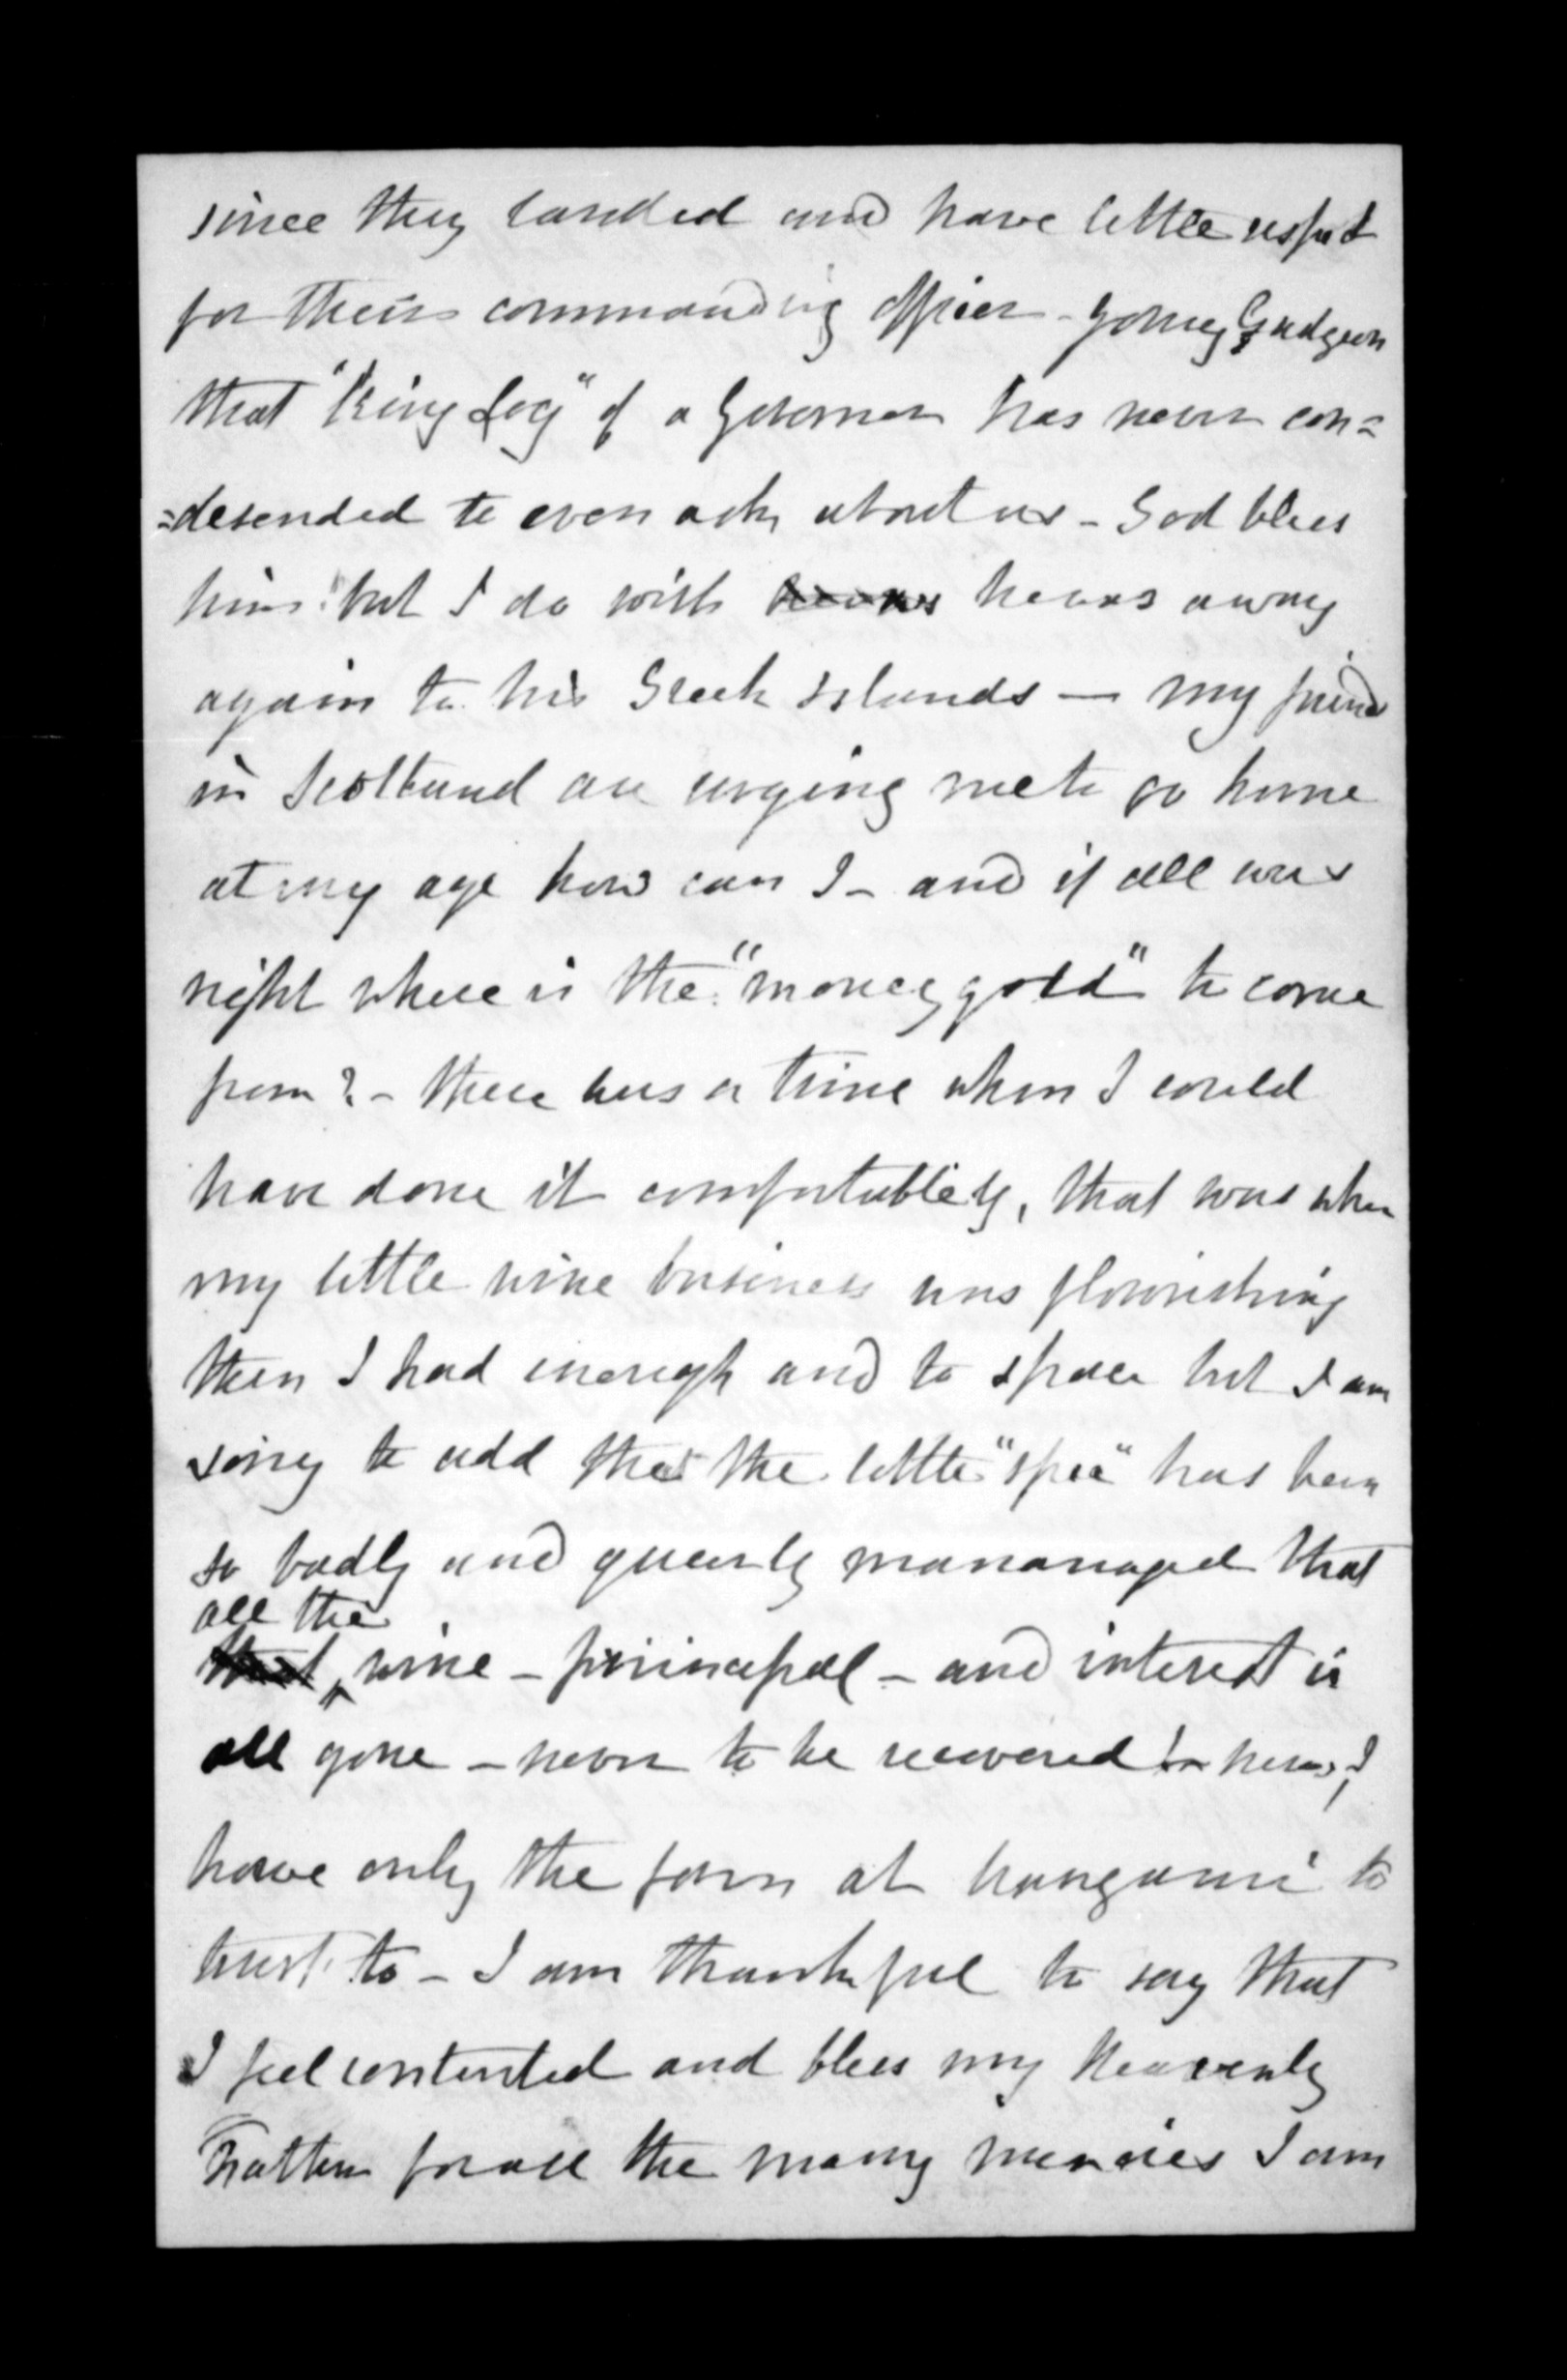 since they landed and have little respect
for their commanding officer - young Gudgeon
that "King Log" of a Governor has never con=
=desended to even ask about us - God bless
him! but I do wish he was away
again to his Greek Islands — my friends
in Scotland are urging me to go home
at my age how can I - and if all was
right where is the "money gold" to come
from? - there was a time when I could
have done it comfortablely, that was when
my little wine business was flourishing
then I had enough and to spare but I am
sorry to add that the little "spec" has been
so badly and queerly mananaged that
all the
wine - principal - and interest is
all gone - never to be recovered! - now, I
have only the farm at Wanganui to
trust to - I am thankful to say that
I feel contented and bless my Heavenly
Father for all the many mercies I am